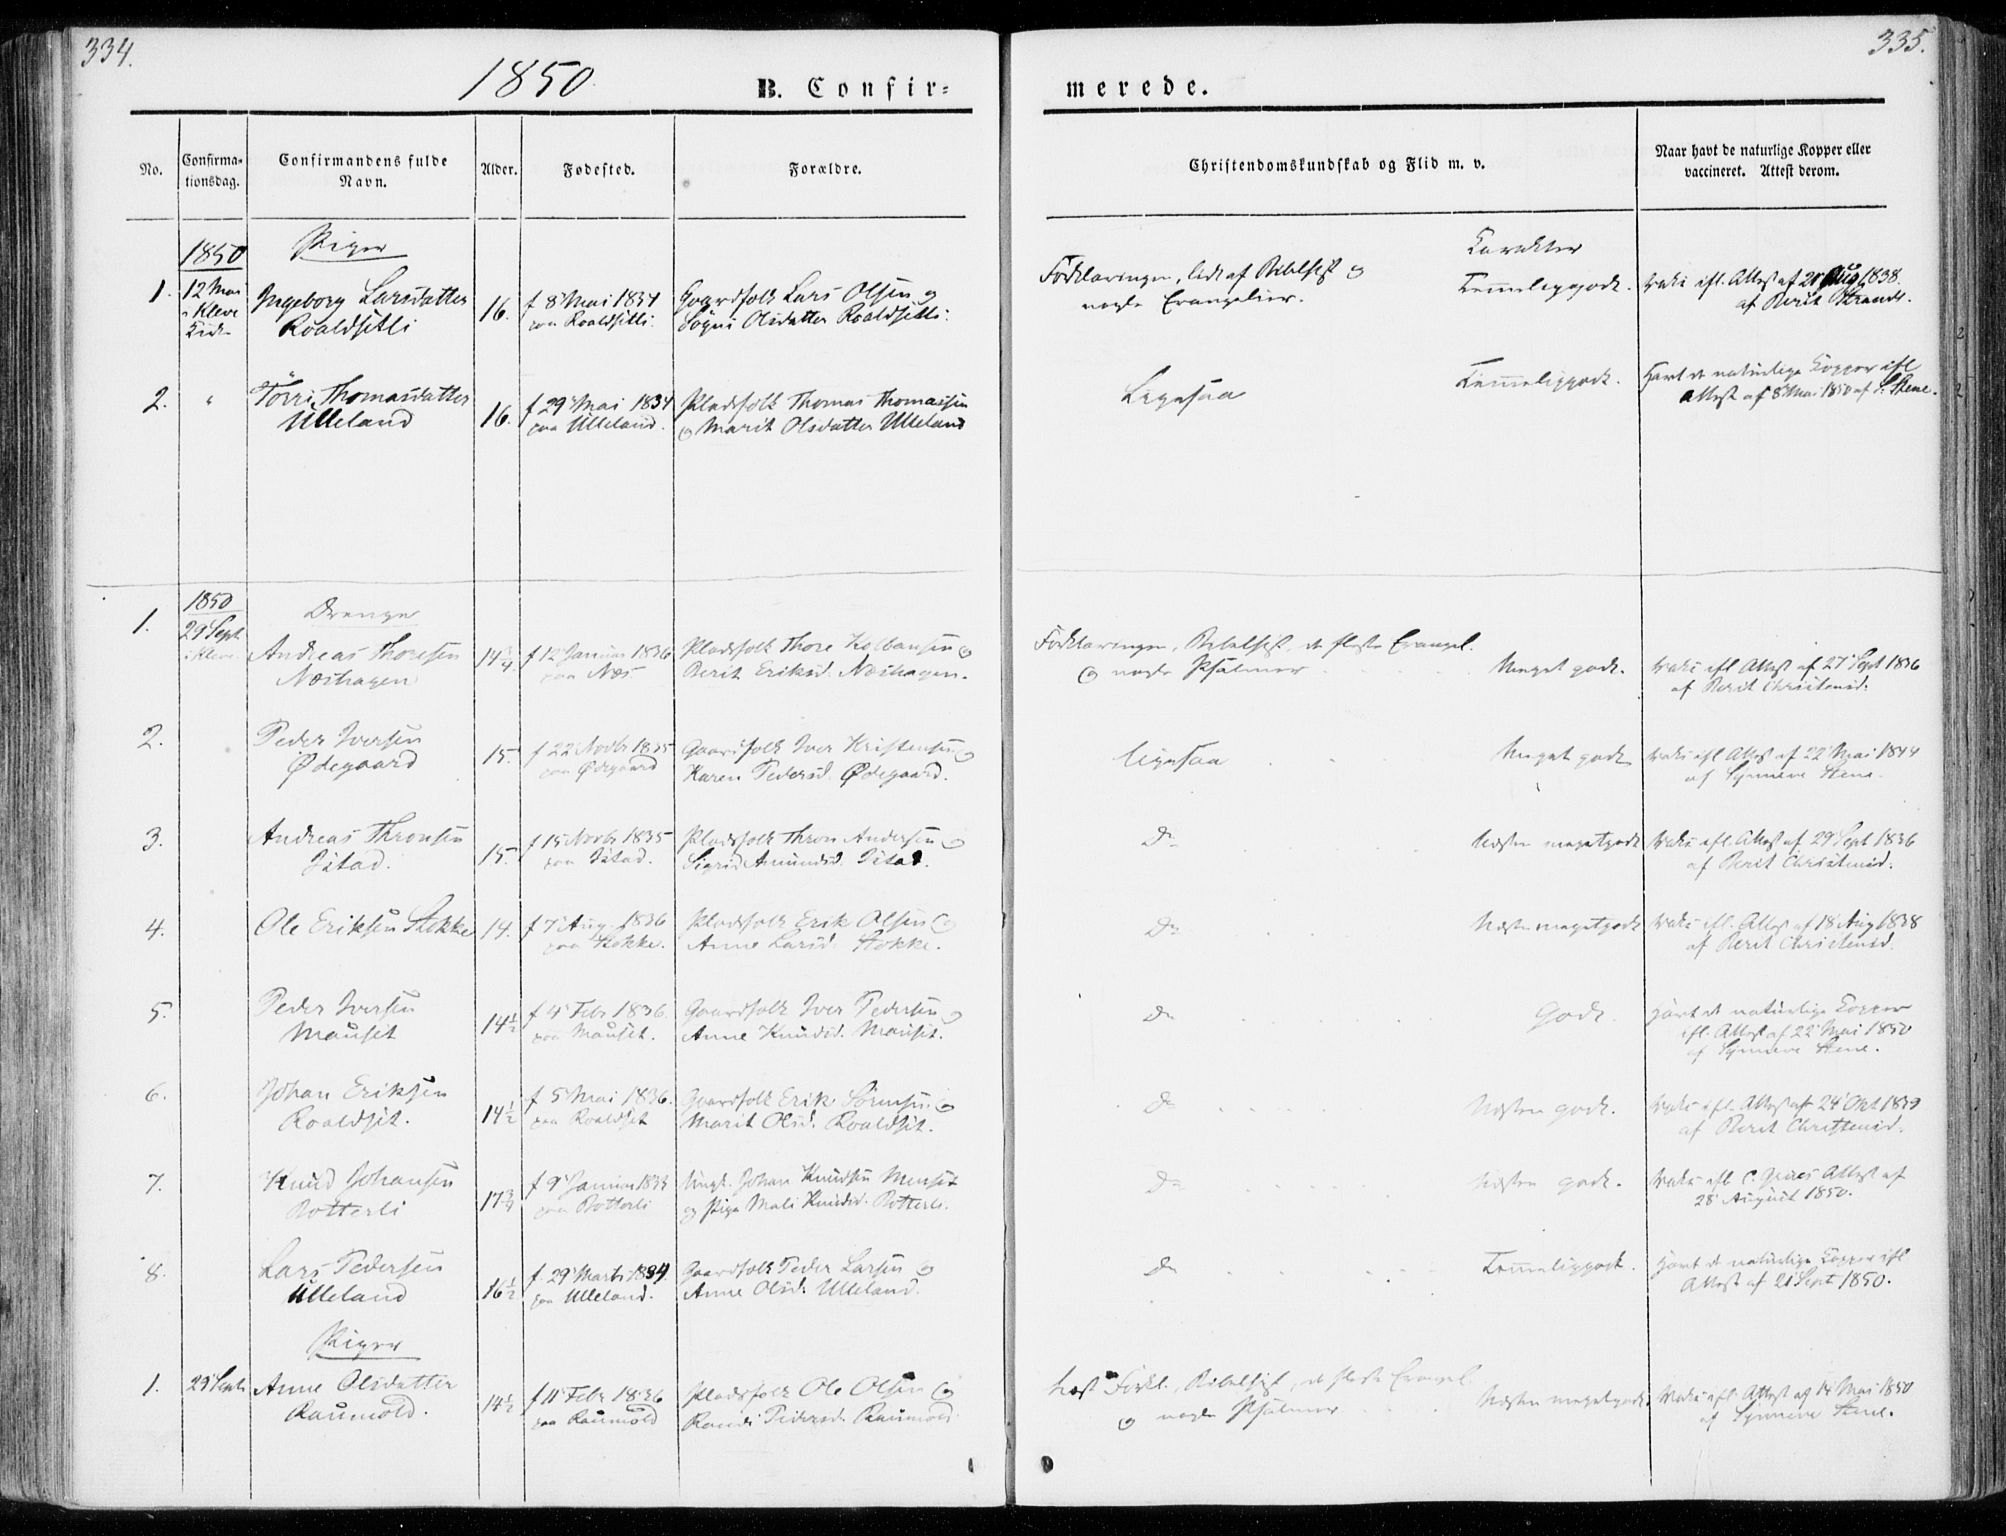 334.
1850.
B. Confir-
No.
Confirma-
tionsdag.
Confirmandens fulde
Navn.
Alder.
Fødested.
Forældre.
1850
Piger
1.
12 Mai
i Kleve
Kirke
Ingeborg Larsdatter
Roaldsetli
16.
f 8 Mai 1834
paa Roaldsetli.
Gaardfolk Lars Olsen og
Sögni Olsdatter Roaldsetli.
2.
"
Törri Thomasdatter
Ulleland
16.
f 29 Mai 1834
paa Ulleland.
Pladsfolk Thomas Thomassen
og Marit Olsdatter Ulleland
1850
Drenge
1.
29 Sept
i Kleve
Andreas Thoresen
Næshagen
14 3/4.
f 12 Januar 1836
paa Næs
Pladsfolk Thore Kolbansen og
Berit Eriksd. Næshagen.
2.
Peder Iversen
Ødegaard
15.
f 22 Novbr 1835
paa Ødegaard
Gaardfolk Iver Kristensen og
Karen Pedersd. Ødegaard.
3.
Andreas Thronsen
Istad.
15.
f 15 Novbr 1835
paa Istad.
Pladsfolk Thron Andersen og
Sigrid Amundsd. Istad.
4.
Ole Eriksen Stokke
14.
f 7 Aug. 1836
paa Stokke.
Pladsfolk Erik Olsen og
Anne Larsd. Stokke.
5.
Peder Iversen
Mauset
14 1/2
f 4 Febr 1836.
paa Mauset.
Gaardfolk Iver Pedersen og
Anne Knudsd. Mauset.
6.
Johan Eriksen
Roaldset.
14 1/2
f 5 Mai 1836.
paa Roaldset
Gaardfolk Erik Sörensen og
Marit Olsd. Roaldset.
7.
Knud Johansen
Botterli
17 3/4
f 9 Januar 1833
paa Botterli
Ungk. Johan Knudsen Mauset
og Pige Mali Knudsd. Botterli.
8.
Lars Pedersen
Ulleland
16 1/2
f. 29 Marts 1834.
paa Ulleland.
Gaardfolk Peder Larsen og
Anne Olsd. Ulleland.
Piger
1.
29 Sept
Anne Olsdatter
Raumold.
14 1/2
f 11 Febr 1836
paa Raumold
Pladsfolk Ole Olsen og
Randi Pedersd. Raumold
335.
merede.
Christendomskundskab og Flid m. v.
Naar havt de naturlige Kopper eller
vaccineret. Attest derom.
Karakter
Forklaringen, lidt af Bibelhist og
nogle Evangelier.
Temmeliggodt.
Vaks ifl. Attest af 20 Aug 1838.
af Berit Strande.
Ligesaa
Temmeliggodt.
Havt de naturlige Kopper ifl
Attest af 8 Mai 1850 af S. Stene.
Forklaringen, Bibelhist, de fleste Evangel.
og nogle Psalmer
Meget godt.
Vaks ifl. Attest af 27 Sept 1836
af Berit Christensd.
Ligesaa
Meget godt
Vaks ifl Attest af 22 Mai 1844
af Synneve Stene.
Do
Næsten megetgodt
Vaks ifl. Attest af 29 Sept 1836
af Berit Christensd.
Do
Næsten megetgodt
Vaks ifl. Attest af 18 Aug 1838
af Berit Christensd.
Do
Godt.
Havt de naturlige Kopper
ifl. Attest af 22 Mai 1850
af Synneve Stene.
Do
Næsten godt.
Vaks ifl. Attest af 24 Okt 1839
af Berit Christensd.
Do
Næsten godt.
Vaks ifl C. Attest af
28 August 1850.
Do
Temmeliggodt.
Havt de naturlige Kopper ifl
Attest af 21 Sept 1850.
Læst Forkl., Bibelhist, de fleste Evangel.
og nogle Psalmer
Næsten megetgodt.
Vaks ifl. Attest af 14 Mai 1850
af Synneve Stene.